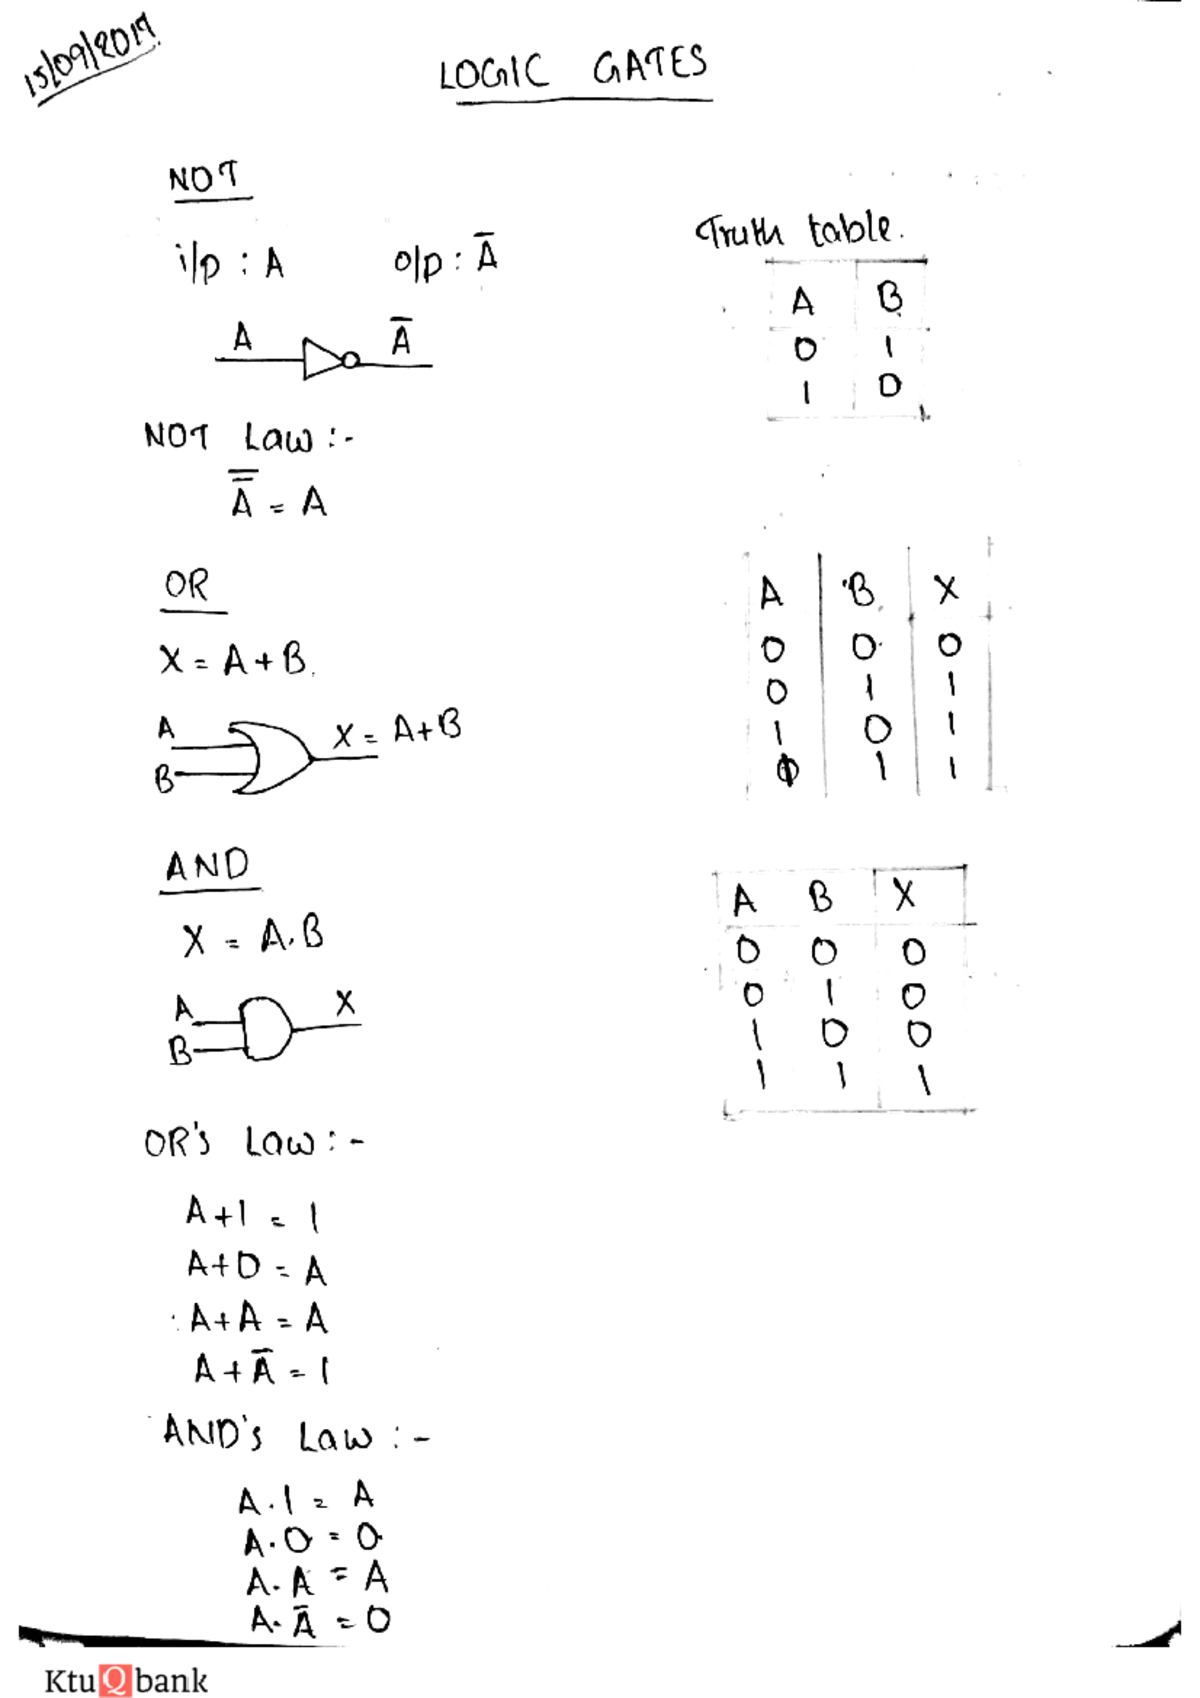 15/09/2017
LOGIC GATES
NOT
i/p : A o/p : A̅
A A̅
NOT Law :-
A̿ = A
Truth table.
A B
0 1
1 0
OR
X = A + B.
A
B
X = A+B
A B X
0 0 0
0 1 1
1 0 1
1 1 1
AND
X = A.B
A
B
X
A B X
0 0 0
0 1 0
1 0 0
1 1 1
OR's Law : -
A+1 = 1
A+0 = A
A+A = A
A + A̅ = 1
AND's Law : -
A.1 = A
A.0 = 0
A.A = A
A.A̅ = 0
KtuQbank